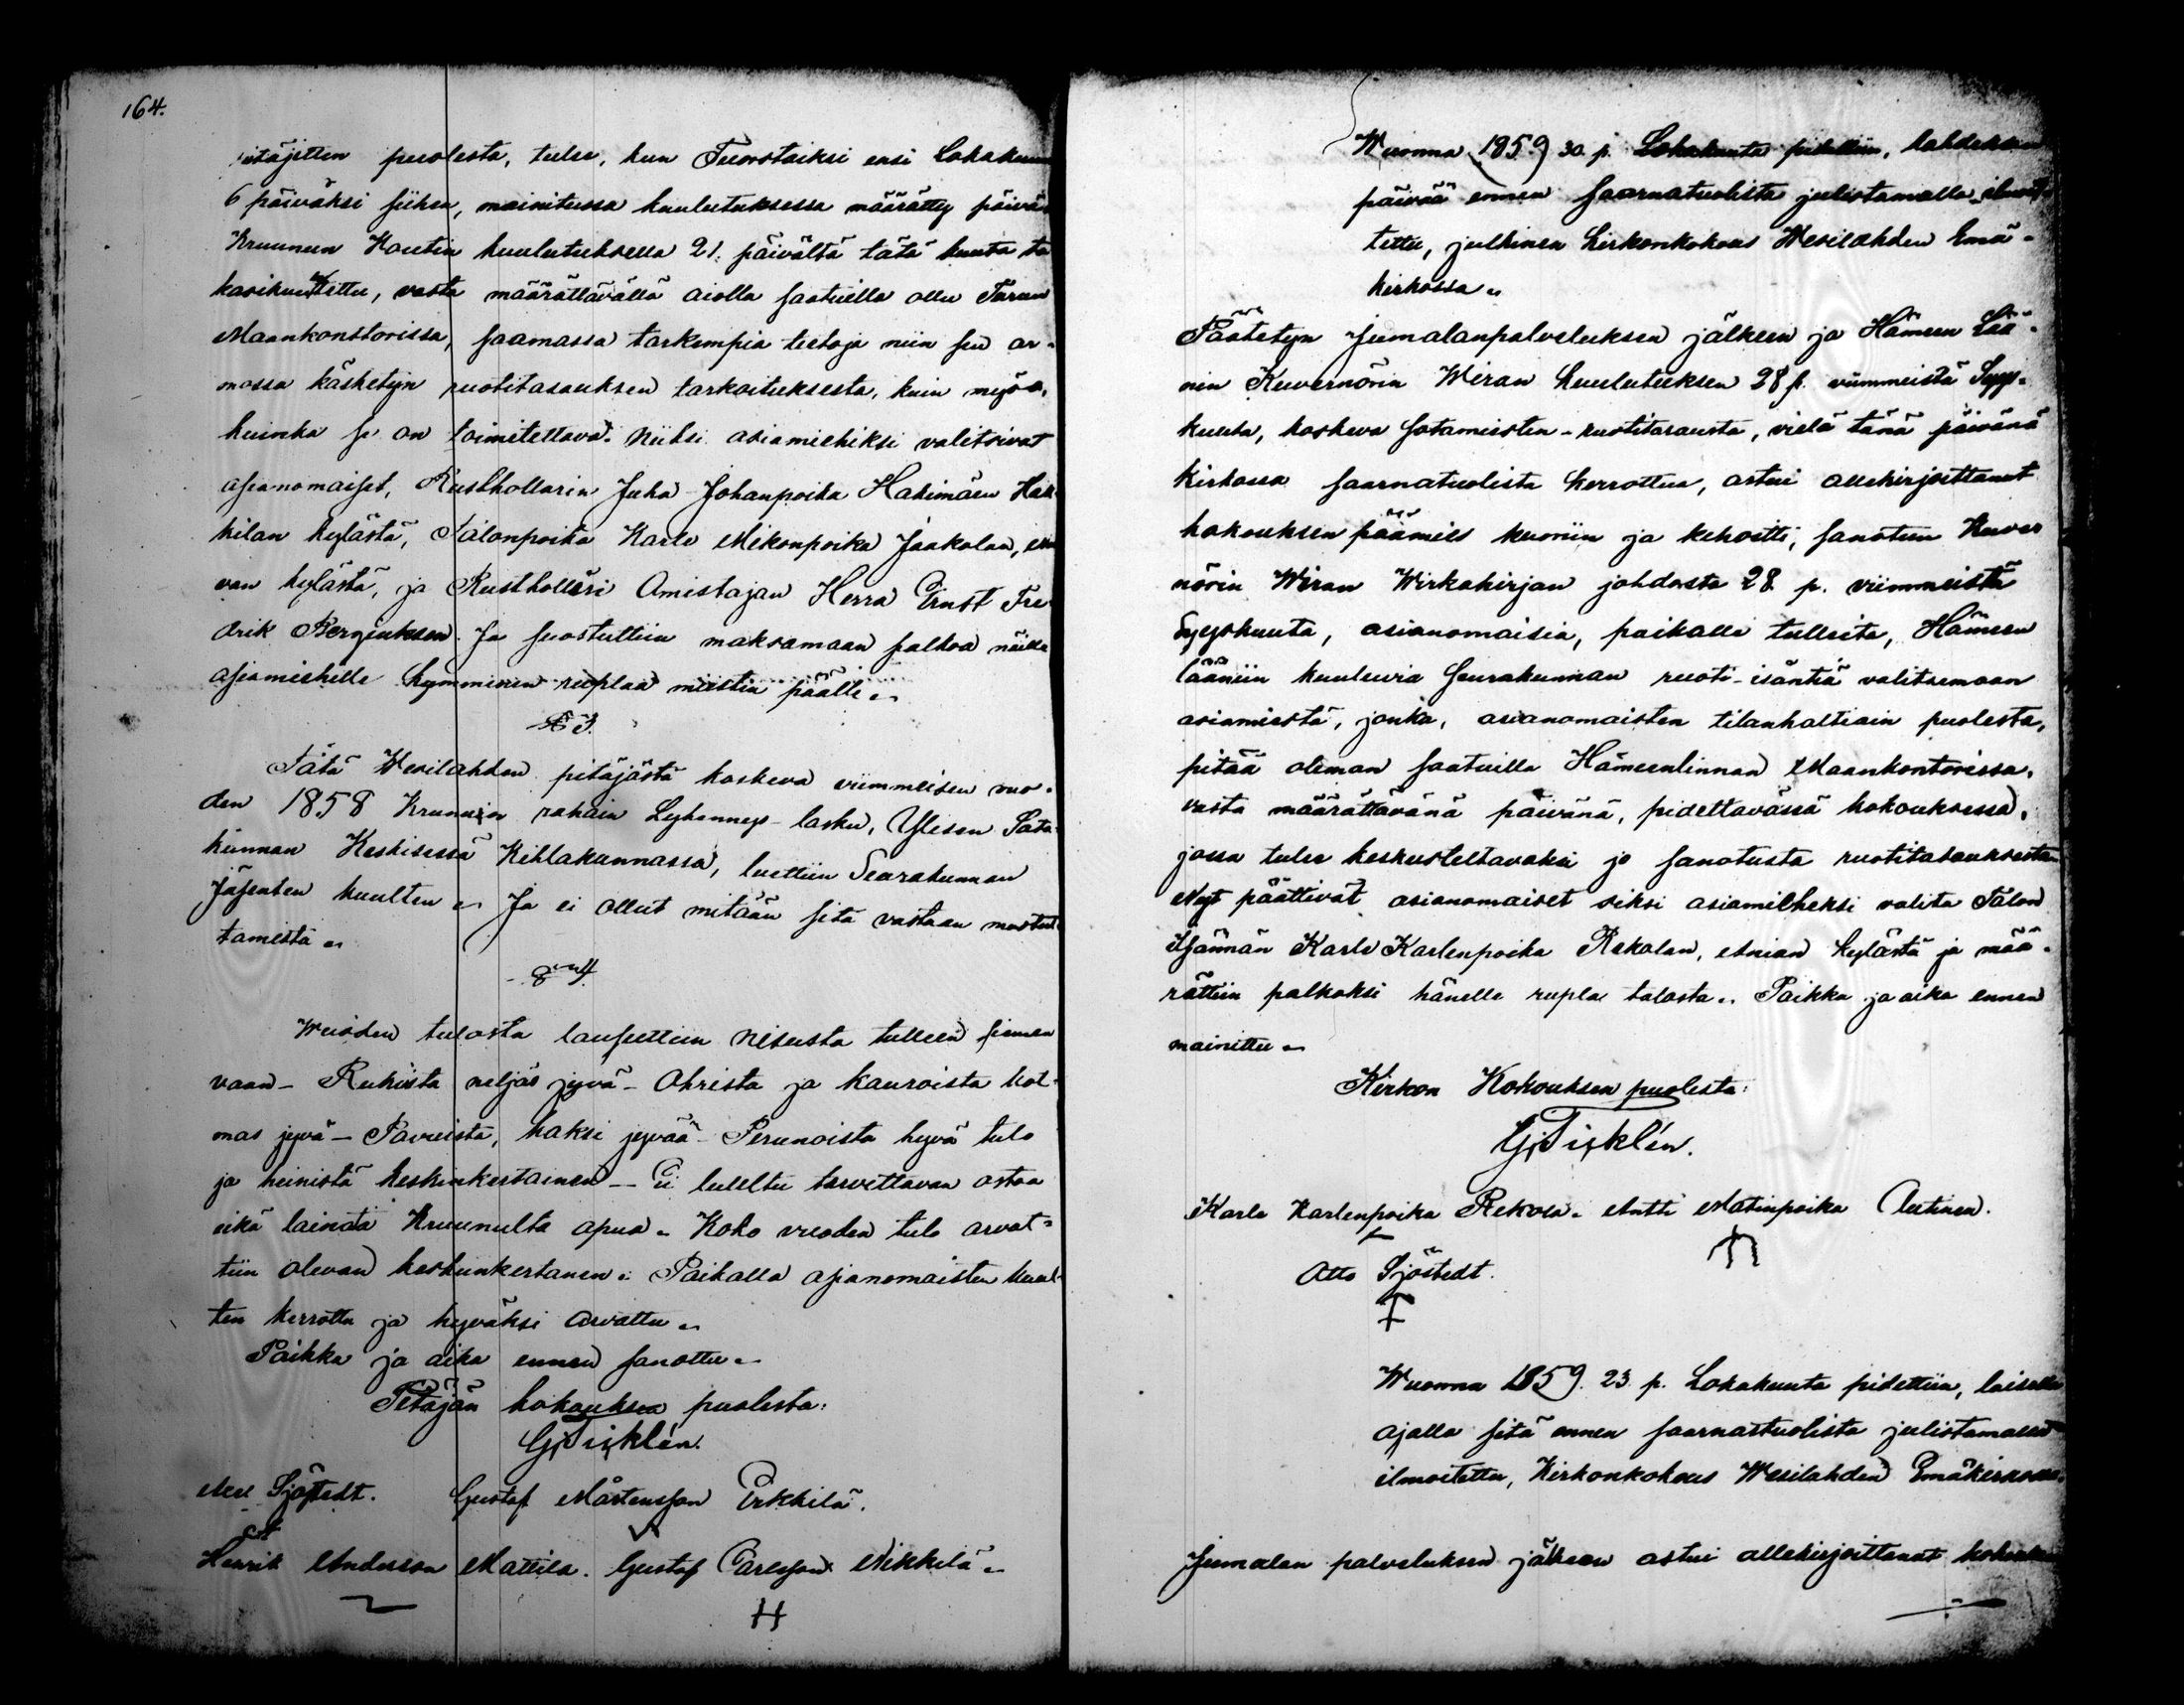 164.
pitäjitten puolesta, tulee, kun Tuorstaiksi ensi Lokakuun
6 päiväksi siihen, mainitussa kuulutuksessa määrätty päivä,
Kruunun Voutin kuulutuksella 21. päivältä tätä kuuta ta
kasikuutettu, vasta määrättävällä aiolla saatuilla ollu Turun
Maankonttorissa, saamassa tarkempia tietoja niin sen ar-
mossa käsketyn ruotitasauksen tarkoituksesta, kuin myös,
kuinka se on toimitettava. Niiksi asiamiehiksi valitsivat
asianomaiset, Rusthollarin Juha Johanpoika Hakimäen Hak-
kilan kylästä, Talonpoika Karle Mikonpoika Jaakolan,
van kylästä, ja Rusthollari Omistajan Herra Ernst Fre-
drik Bergiuksen. Ja suostuttiin maksamaan palkoa näille
asiamiehille kymmenen ruplaa miestin päälle.
§ 3.
Tätä Wesilahden pitäjästä koskeva viimmeisen vuo-
den 1858 Kruunun rahain Lyhennys-lasku, Ylisen Sata-
kunnan Keskisessä Kihlakunnassa, luettiin Seurakunnan
Jäsenten kuulten. Ja ei ollut mitään sitä vastaan muistut-
tamista.
§ 4.
Wuoden tulosta lausuttiin Nisusta tulleen siemen
vaan - Rukiista neljäs jyvä - Ohrista ja kauroista kol-
mas jyvä - Pavuista, kaksi jyvää - Perunoista hyvä tulo
ja heinistä keskinkertainen - Ei luultu tarvittavan ostaa
eikä lainata Kruunulta apua. Koko vuoden tulo arvat-
tiin olevan keskinkertanen. Paikalla asianomaisten kuul-
ten kerrottu ja hyväksi arvattu.
Paikka ja aika ennen sanottu.
Pitäjän kokouksen puolesta:
Gj Ticklén.
Sjöstedt. Gustaf Mårtensson Erkkilä.
Henrik Andersson Mattila. Gustaf Carlsson Nikkilä.
Wuonna 1859 30 p. Lokakuuta pidettiin, kahdeksan
päivää ennen saarnatuolista julistamalla ilmoi-
tettu, julkinen Kirkonkokous Wesilahden Emä-
kirkossa.
Päätetyn Jumalanpalveluksen jälkeen ja Hämeen Lää-
nin Kuvernörin Wiran kuulutuksen 28 p. viimmeistä Syys-
kuuta, koskeva sotamiesten-ruotitasausta, vielä tänä päivänä
kirkossa saarnatuolista kerrottua, astui allekirjoittanut
kokouksen päämies kuoriin ja kehoitti, sanotun Kuver
nörin Wiran Wirkakirjan johdosta 28 p. viimmeistä
Syyskuuta, asianomaisia, paikalle tulleita, Hämeen
lääniin kuuluvia Seurakunnan ruoti-isäntiä valitsemaan
asiamiestä, jonka, asianomaisten tilanhaltiain puolesta,
pitää oleman saatuilla Hämeenlinnan Maankontorissa,
vasta määrättävänä päivänä, pidettavässä kokouksessa,
jossa tulee keskusteltavaksi jo sanotusta ruotitasauksesta.
Nyt päättivät asianomaiset siksi asiamieheksi valita Talon
Isännän Karle Karlenpoika Rekolan, Anian kylästä ja mää-
rättiin palkaksi hänelle rupla talosta. Paikka ja aika ennen
mainittu.
Kirkon Kokouksen puolesta:
Gj Ticklén.
Karle Karlenpoika Rekola. Antti Matinpoika Uutinen.
Otto Sjöstedt.
Wuonna 1859. 23 p. Lokakuuta pidettiin, laisella
ajalla sitä ennen saarnastuolista julistamalla
ilmoitettu, Kirkonkokous Wesilahden Emäkirkossa.
Jumalan palveluksen jälkeen astui allekirjoittanut kokouksen